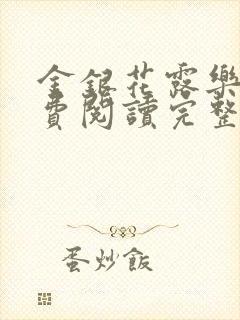 金銀花露樂
費閱讀完整
蛋炒飯